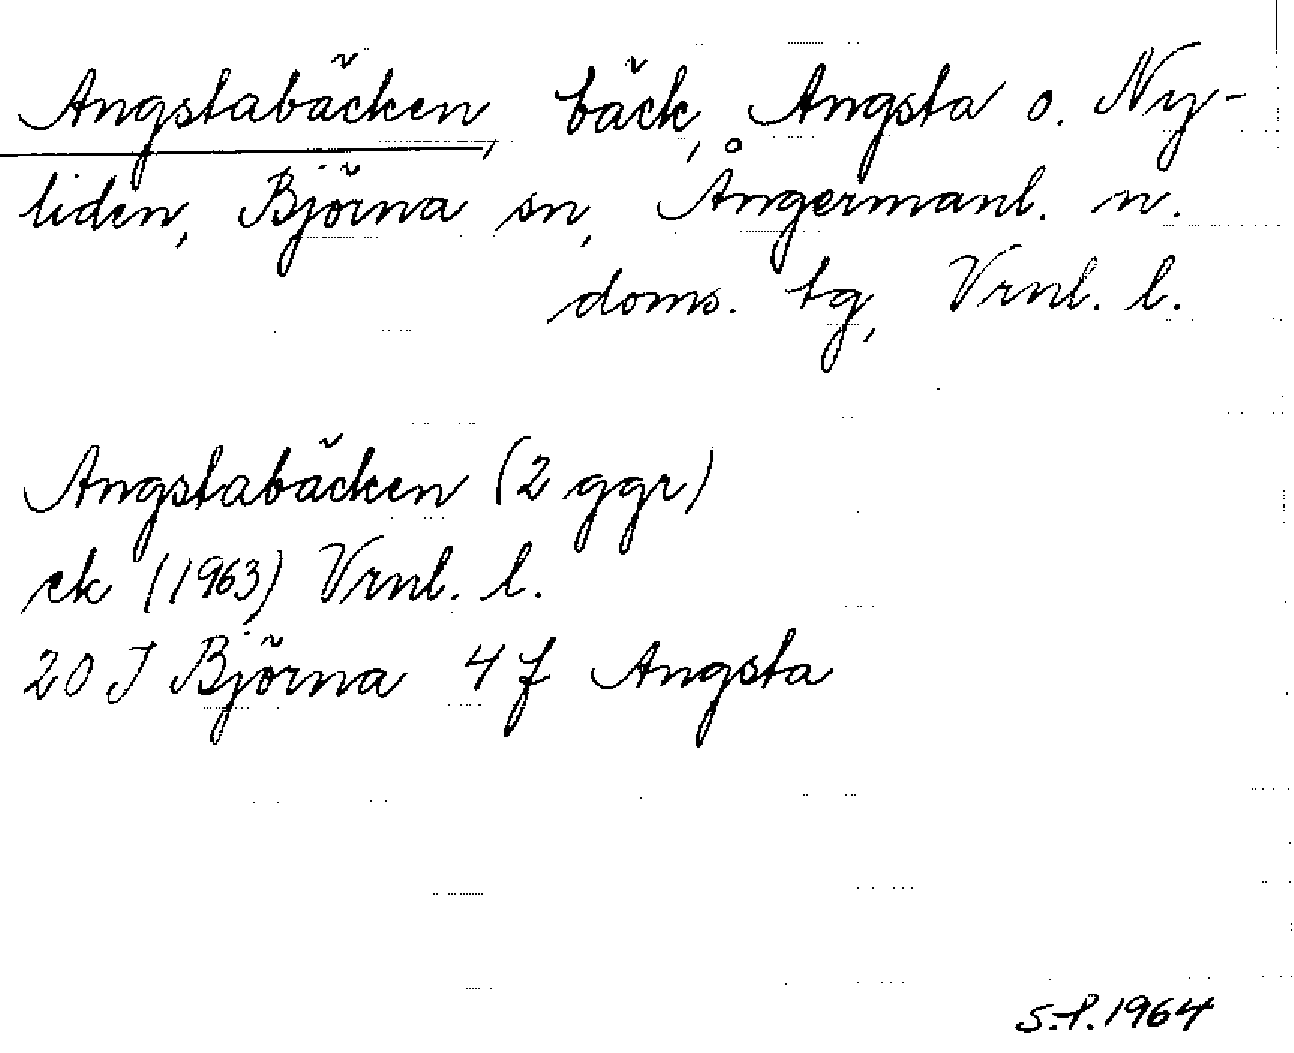 Angstabäcken, bäck, Angsta o. Ny-
liden, Björna sn, Ångermanl. n.
doms. tg, Vrnl. l.
Angstabäcken (2 ggr)
ek (1963) Vrnl. l.
20 J Björna 4 f Angsta
S.P. 1964